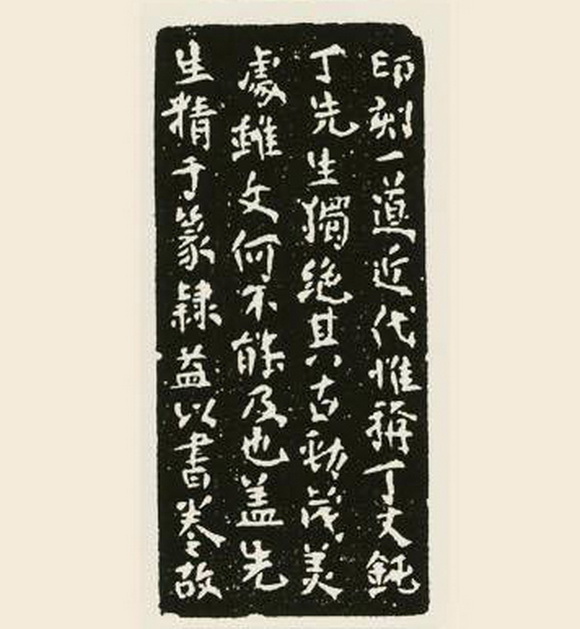 印刻一道近代惟稱丁丈鈍
丁先生獨絕其古勁茂美
處雖文何不能及也盖先
生精于篆隸益以書卷故